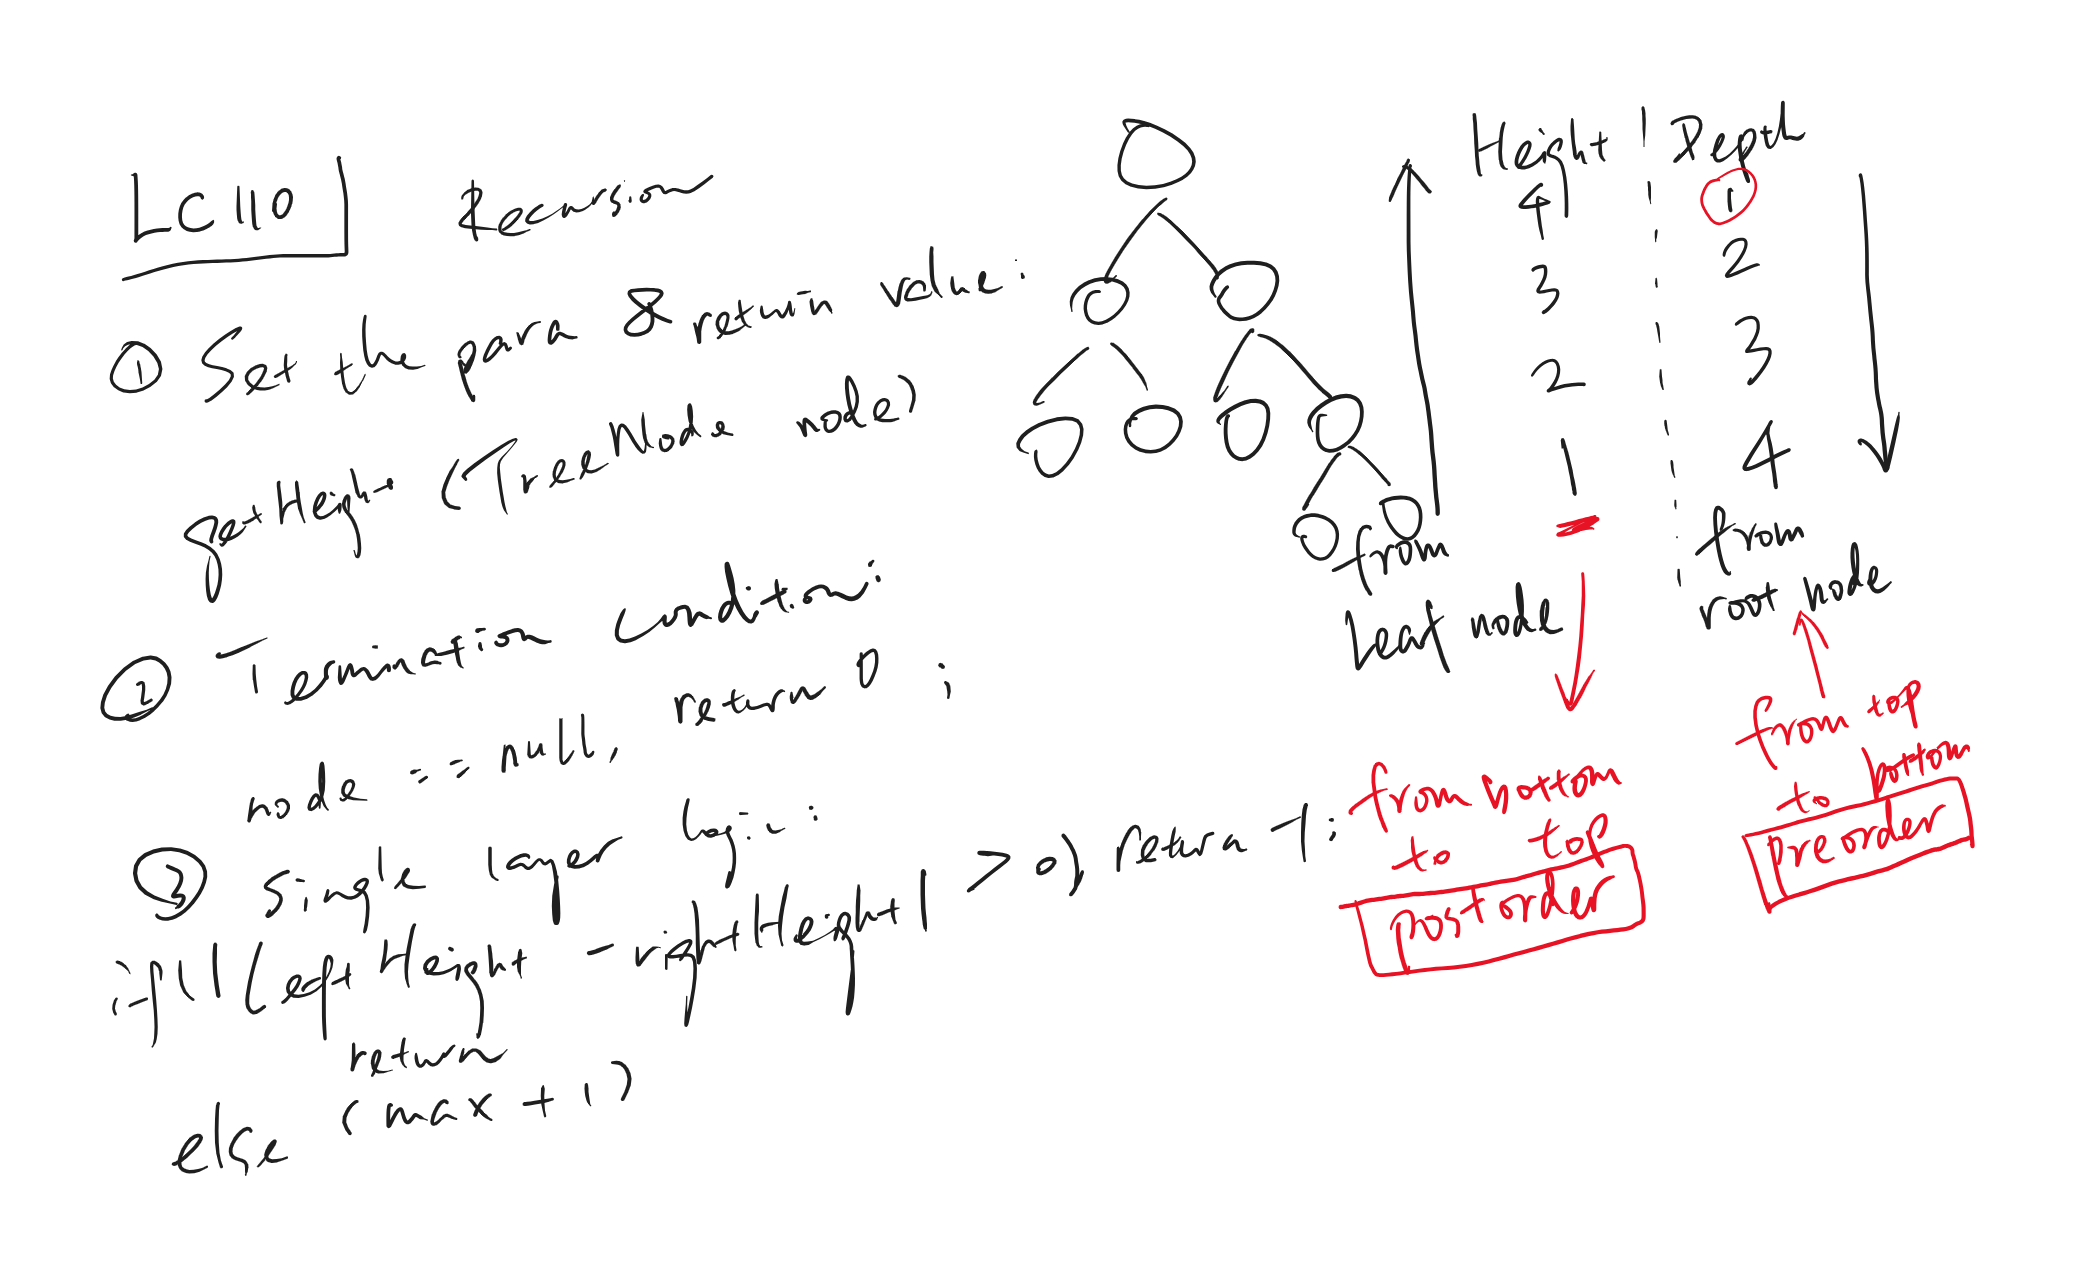 LC110
Recursion
① Set the para & return value:
getHeight (TreeNode node)
② Termination condition:
node == null, return 0 ;
③ single layer logic:
if(|leftHeight - rightHeight| > 0) return -1;
return
else (max + 1)
Height
4
3
2
1
from
Leaf node
from bottom
to top
postorder
Depth
1
2
3
4
from
root node
from top
to bottom
preorder